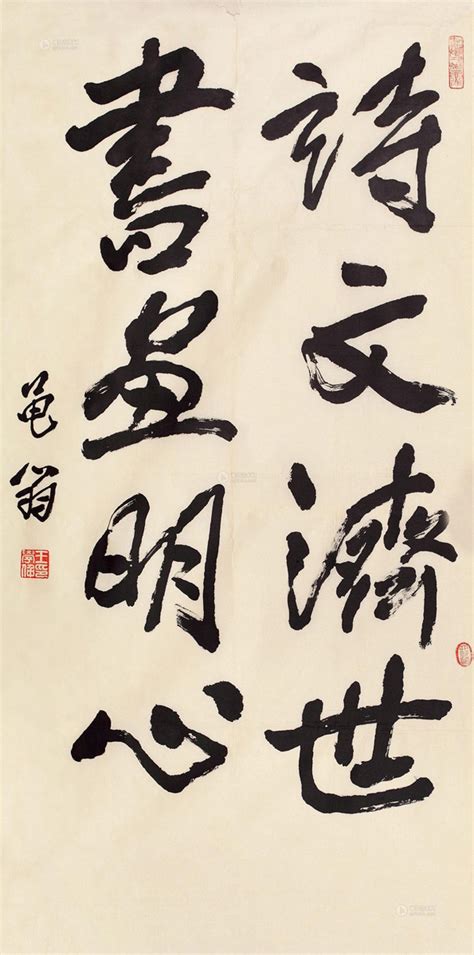 詩文濟世
書畫明心
黽翁